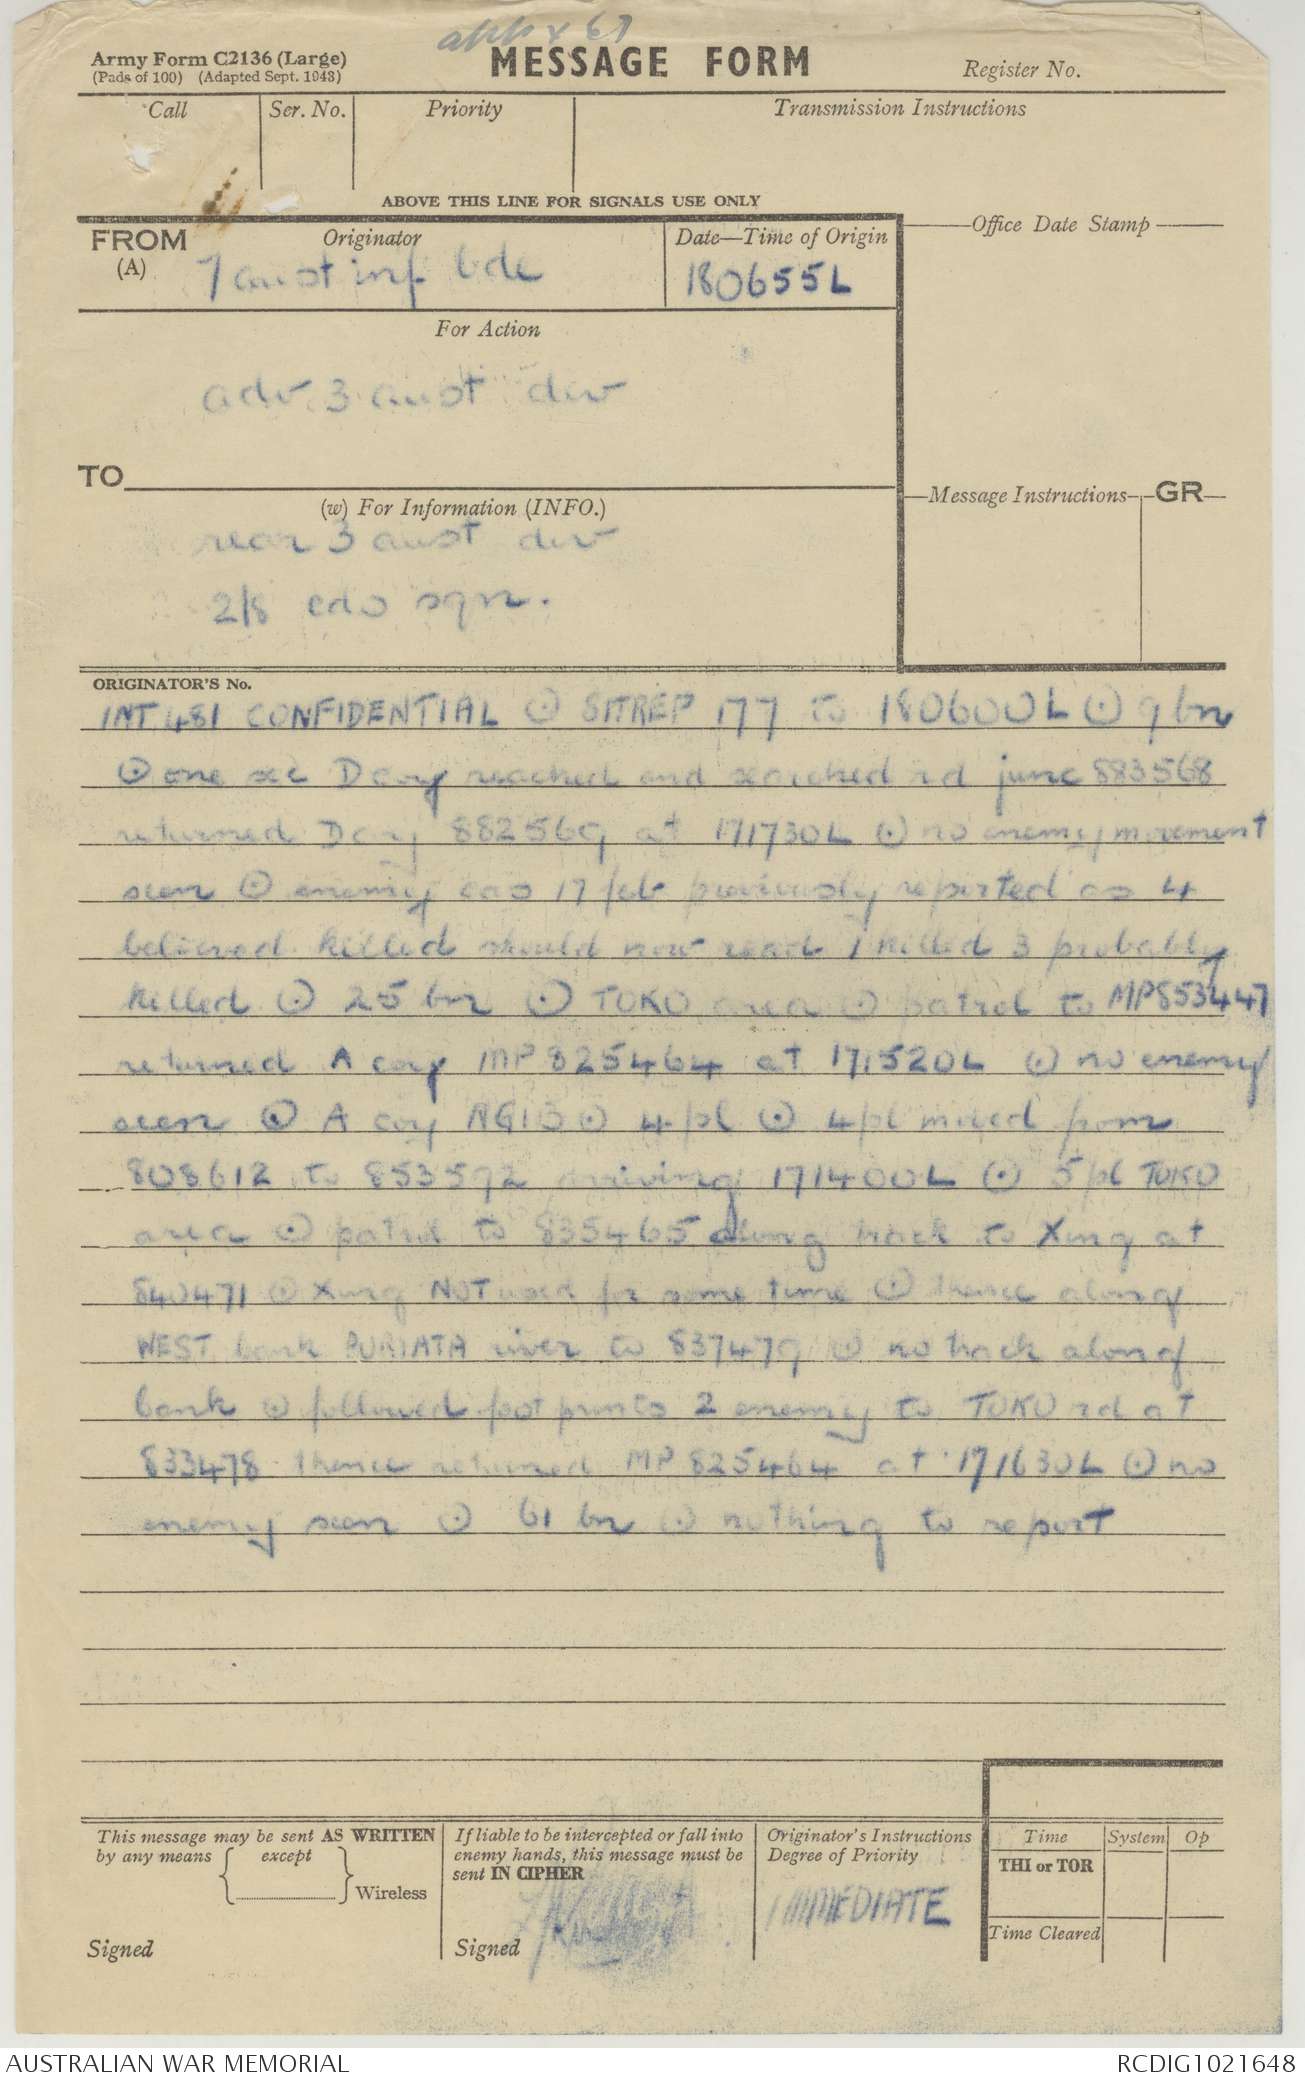 appx 67
Army Form C2136 (Large)
(Pads of 100) (Adapted Sept. 1943)
MESSAGE FORM
Register No.
Call
Ser. No.
Priority
Transmission Instructions
ABOVE THIS LINE FOR SIGNALS USE ONLY
FROM
(A)
Originator
7 aust inf bde
Date—Time of Origin
180655L
Office Date Stamp
For Action
adv 3 aust div
TO
(w) For Information (INFO.)
rear 3 aust div
2/8 cdo sqn.
Message Instructions
GR
ORIGINATOR'S No.
INT 481 CONFIDENTIAL ⊙ SITREP 177 to 180600L ⊙ 9 bn
⊙ one sec D coy reached and searched rd junc 883568
returned D coy 882569 at 171730L ⊙ no enemy movement
seen ⊙ enemy cas 17 feb previously reported as 4
believed killed should now read 1 killed 3 probably
killed ⊙ 25 bn ⊙ TOKO area ⊙ patrol to MP853447
returned A coy MP 825464 at 171520L ⊙ no enemy
seen ⊙ A coy ⊙ 4 pl ⊙ 4 pl moved from
808612 to 853592 arriving 171400L ⊙ 5 pl TOKO
area ⊙ patrol to 835465 along track to Xing at
840471 ⊙ Xing NOT used for some time ⊙ thence along
WEST bank PURIATA river to 837479 ⊙ no track along
bank ⊙ followed foot prints 2 enemy to TOKO rd at
833478 thence returned MP 825464 at 171630L ⊙ no
enemy seen ⊙ 61 bn ⊙ nothing to report
This message may be sent AS WRITTEN
by any means except
Wireless
Signed
If liable to be intercepted or fall into
enemy hands, this message must be
sent IN CIPHER
Signed
Originator's Instructions
Degree of Priority
IMMEDIATE
Time
System
Op
THI or TOR
Time Cleared
AUSTRALIAN WAR MEMORIAL
RCDIG1021648